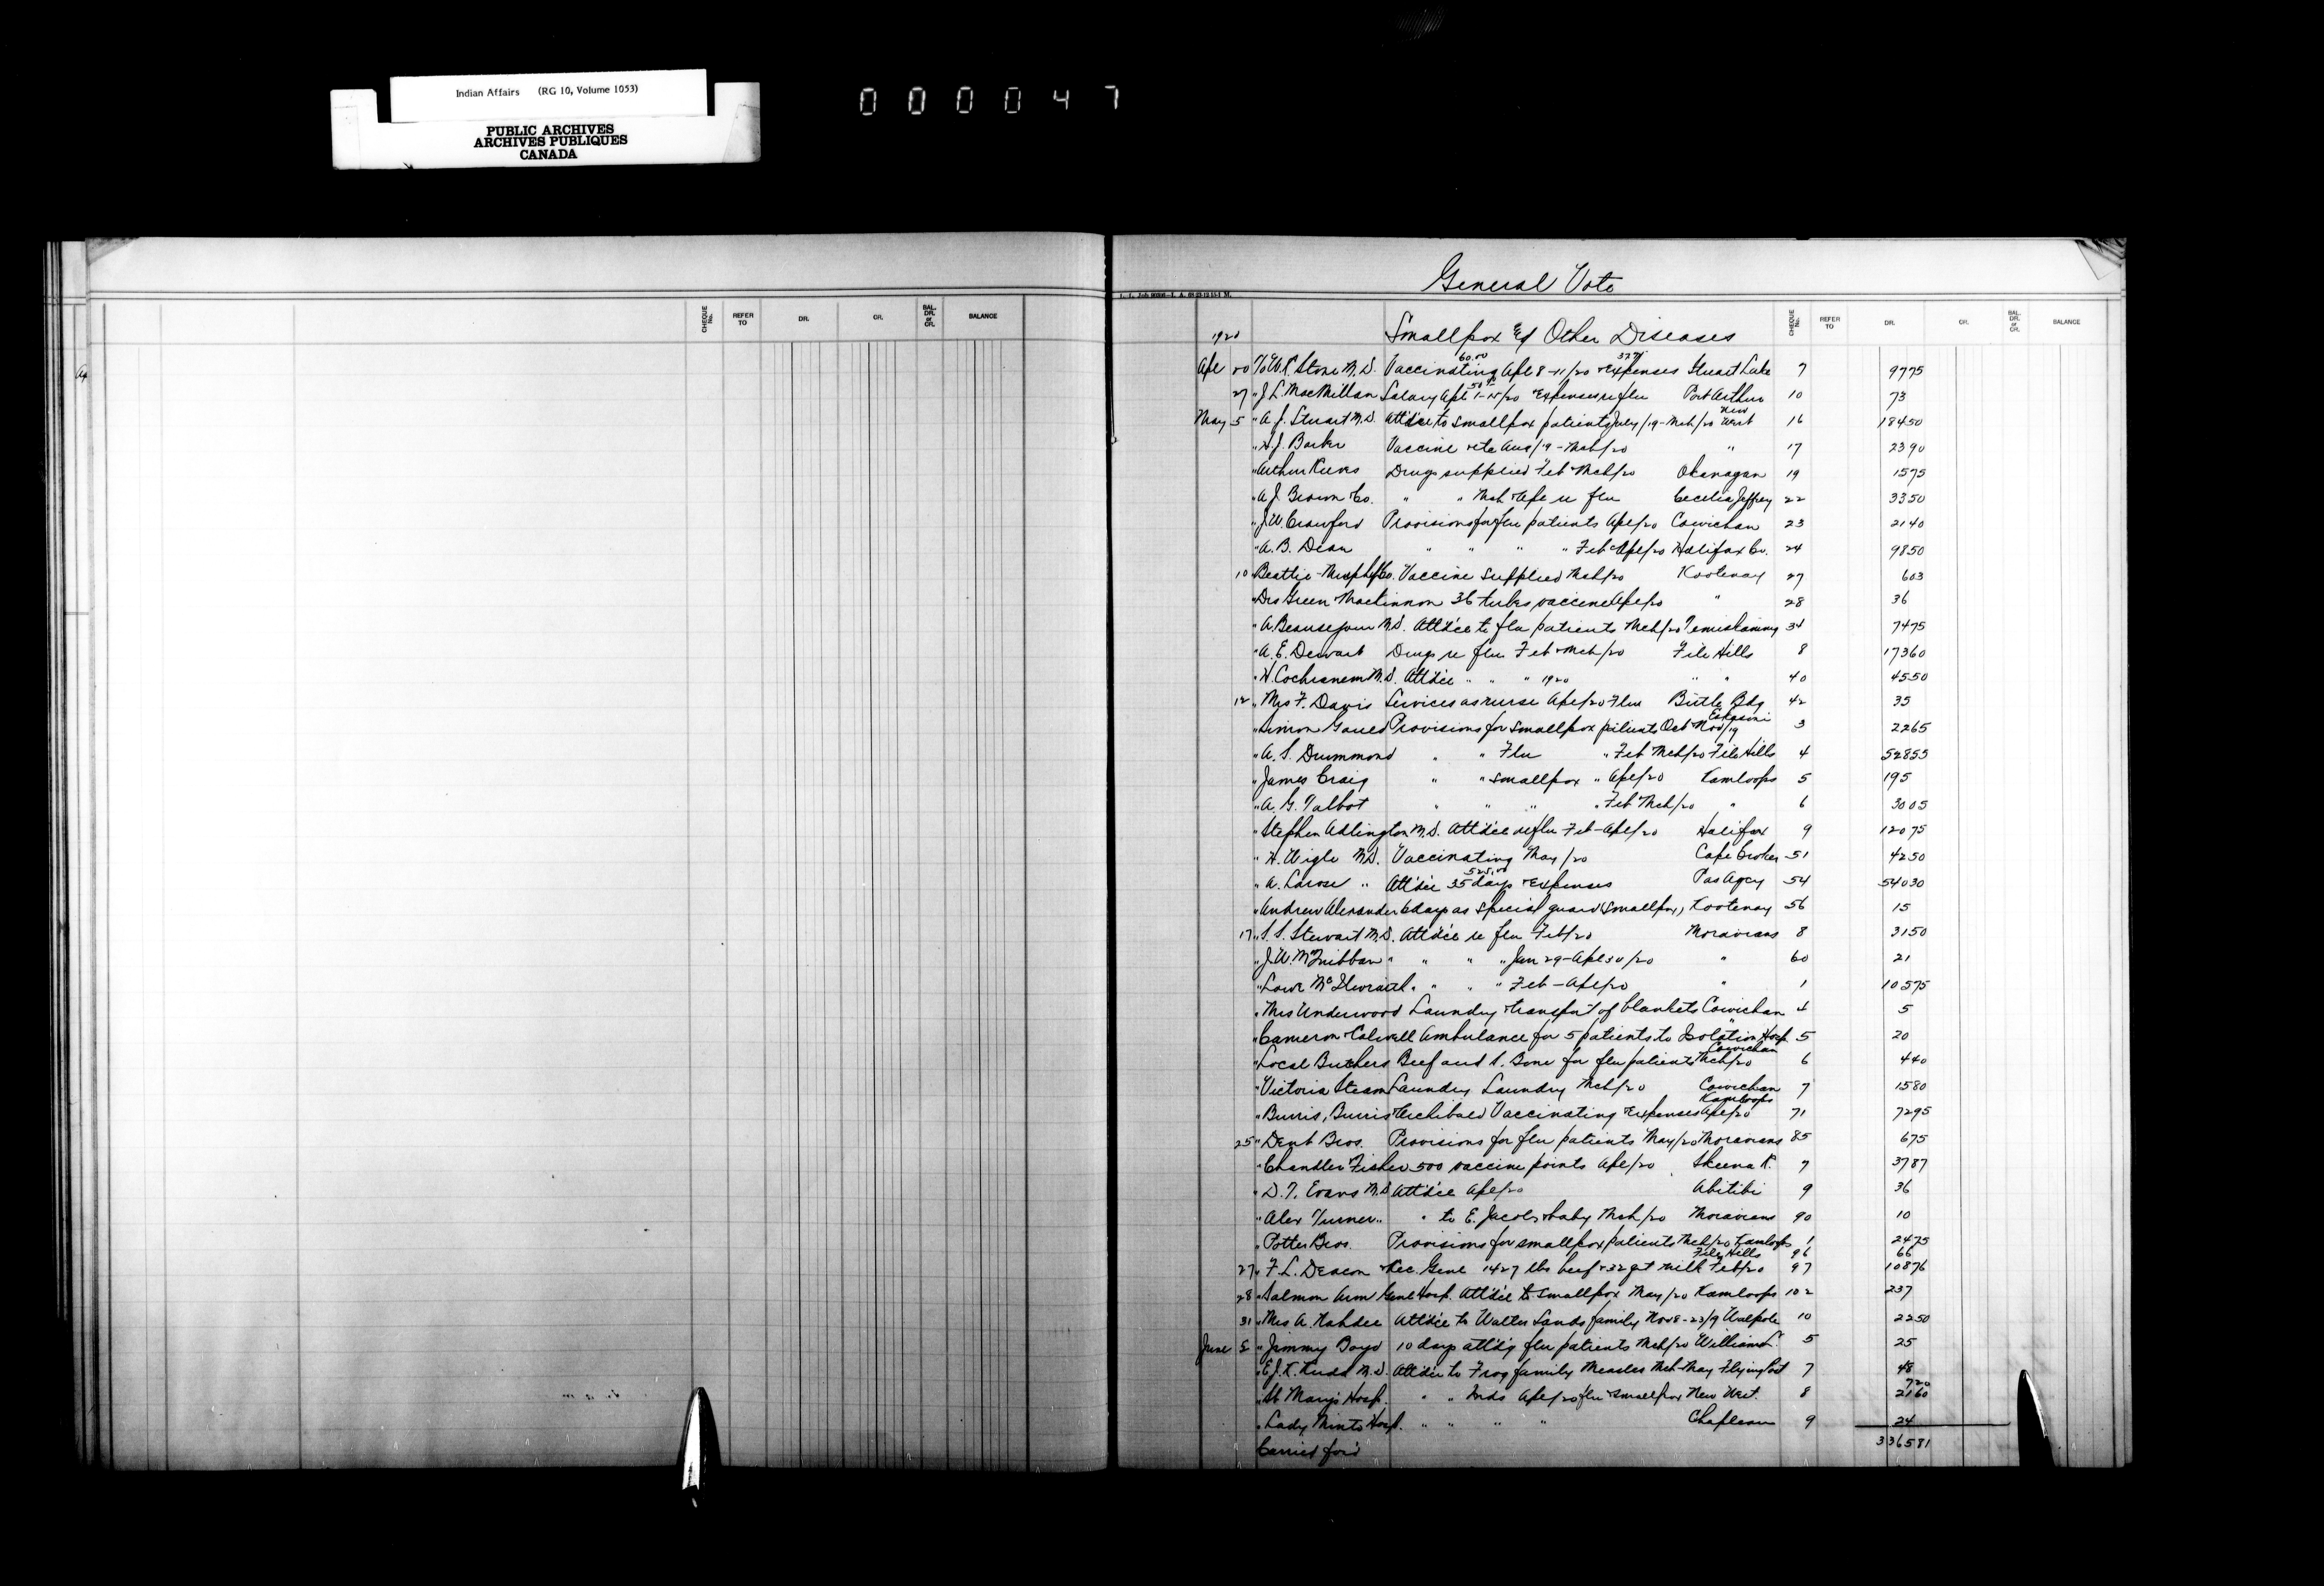 Indian Affairs (RG 10, Volume 1053)
PUBLIC ARCHIVES
ARCHIVES PUBLIQUES
CANADA
000047
General Vote
CHEQUE No. REFER TO DR. CR. BAL. DR. or CR. BALANCE
CHEQUE No. REFER TO DR. CR. BAL. DR. or CR. BALANCE
1920 Smallpox & Other Diseases
60.00 37.75
Apl 20 To W.R. Stone M.D. Vaccinating Apl 8-11/20 & Expenses Stuart Lake 7 9775
27 " J.L. MacMillan Salary Apl 1-15/20 & Expenses re flu Port Arthur 10 73
New
May 5 " A.J. Stuart M.D. Att'd'ce to smallpox patients July/19-Mch/20 West 16 18450
" H.J. Barber Vaccine etc Aug/19-Mch/20 " 17 2390
" Arthur Reeves Drugs supplied Feb & Mch/20 Okanagan 19 1575
" A.J. Brown Co. " " Mch & Apl re flu Cecelia Jeffrey 22 3350
" J.W. Crawford Provisions for flu patients Apl/20 Cowichan 23 2140
" A.B. Dean " " " " Feb & Apl/20 Halifax Co. 24 9850
10 " Beattie-Murphy Co. Vaccine supplied Mch/20 Kootenay 27 603
" Drs Green & MacKinnon 36 tubes vaccine Apl/20 " 28 36
" A. Beausejour M.D. Att'd'ce to flu patients Mch/20 Temiskaming 34 7475
" A.E. Dewart Drugs re flu Feb & Mch/20 File Hills 8 17360
" W. Cochrane M.D. Att'd'ce " " " 1920 " " 40 4550
12 " Mrs F. Davis Services as nurse Apl/20 Flu Birtle Bdg 42 35
Eskasoni
" Simon Provisions for smallpox patients Oct & Nov/19 3 2265
" A.S. Drummond " " Flu " Feb & Mch/20 File Hills 4 52855
" James Craig " " smallpox " Apl/20 Kamloops 5 195
" A.G. Talbot " " " " Feb & Mch/20 " 6 3005
" Stephen Adlington M.D. Att'd'ce re flu Feb-Apl/20 Halifax 9 12075
" H. Wigle M.D. Vaccinating May/20 Cape Croker 51 4250
525.00
" A. Larose " Att'd'ce 35 days & Expenses Pas Agcy 54 54030
" Andrew Alexander 6 days as special guard (smallpox) Kootenay 56 15
17 " S.S. Stewart M.D. Att'd'ce re flu Feb/20 Moravians 8 3150
" J.W. McGribban " " " " Jan 29-Apl 30/20 " 60 21
" Lowr McIlwraith " " " " Feb-Apl/20 " 1 10575
" Mrs Underwood Laundry & transp't of blankets Cowichan 4 5
" Cameron & Calwell Ambulance for 5 patients to Isolation Hosp 5 20
Cowichan
" Local Butchers Beef and S. Bone for flu patients Mch/20 6 440
" Victoria Steam Laundry Laundry Mch/20 Cowichan 7 1580
Kamloops
" Burris, Burris & Archibald Vaccinating & Expenses Apl/20 71 7295
25 " Dent Bros. Provisions for flu patients May/20 Moravians 85 675
" Chandler & Fisher 500 vaccine points Apl/20 Skeena R. 7 3787
" D.T. Evans M.D. Att'd'ce Apl/20 Abitibi 9 36
" Alex Turner " " to E. Jacobs & baby Mch/20 Moravians 90 10
" Potter Bros. Provisions for smallpox patients Mch/20 Kamloops 1 2475
File Hills 96 66
27 " F.L. Deacon & Rec. Genl 1427 lbs beef & 32 qt milk Feb/20 97 10876
28 " Salmon Arm Genl Hosp. Att'd'ce to smallpox May/20 Kamloops 102 237
31 " Mrs A. Kahdee Att'd'ce to Walter Sands family Nov 8-23/9 Walpole 10 2250
June 5 " Jimmy Boyd 10 days att'd'g flu patients Mch/20 Williams L. 5 25
" E.J.K. M.D. Att'd'ce to Frog family Measles Mch-May Flying Post 7 48
720
" St Marys Hosp. " " Inds Apl/20 flu & smallpox New West. 8 2160
" Lady Minto Hosp. " " " " Chapleau 9 24
Carried for'd 336581